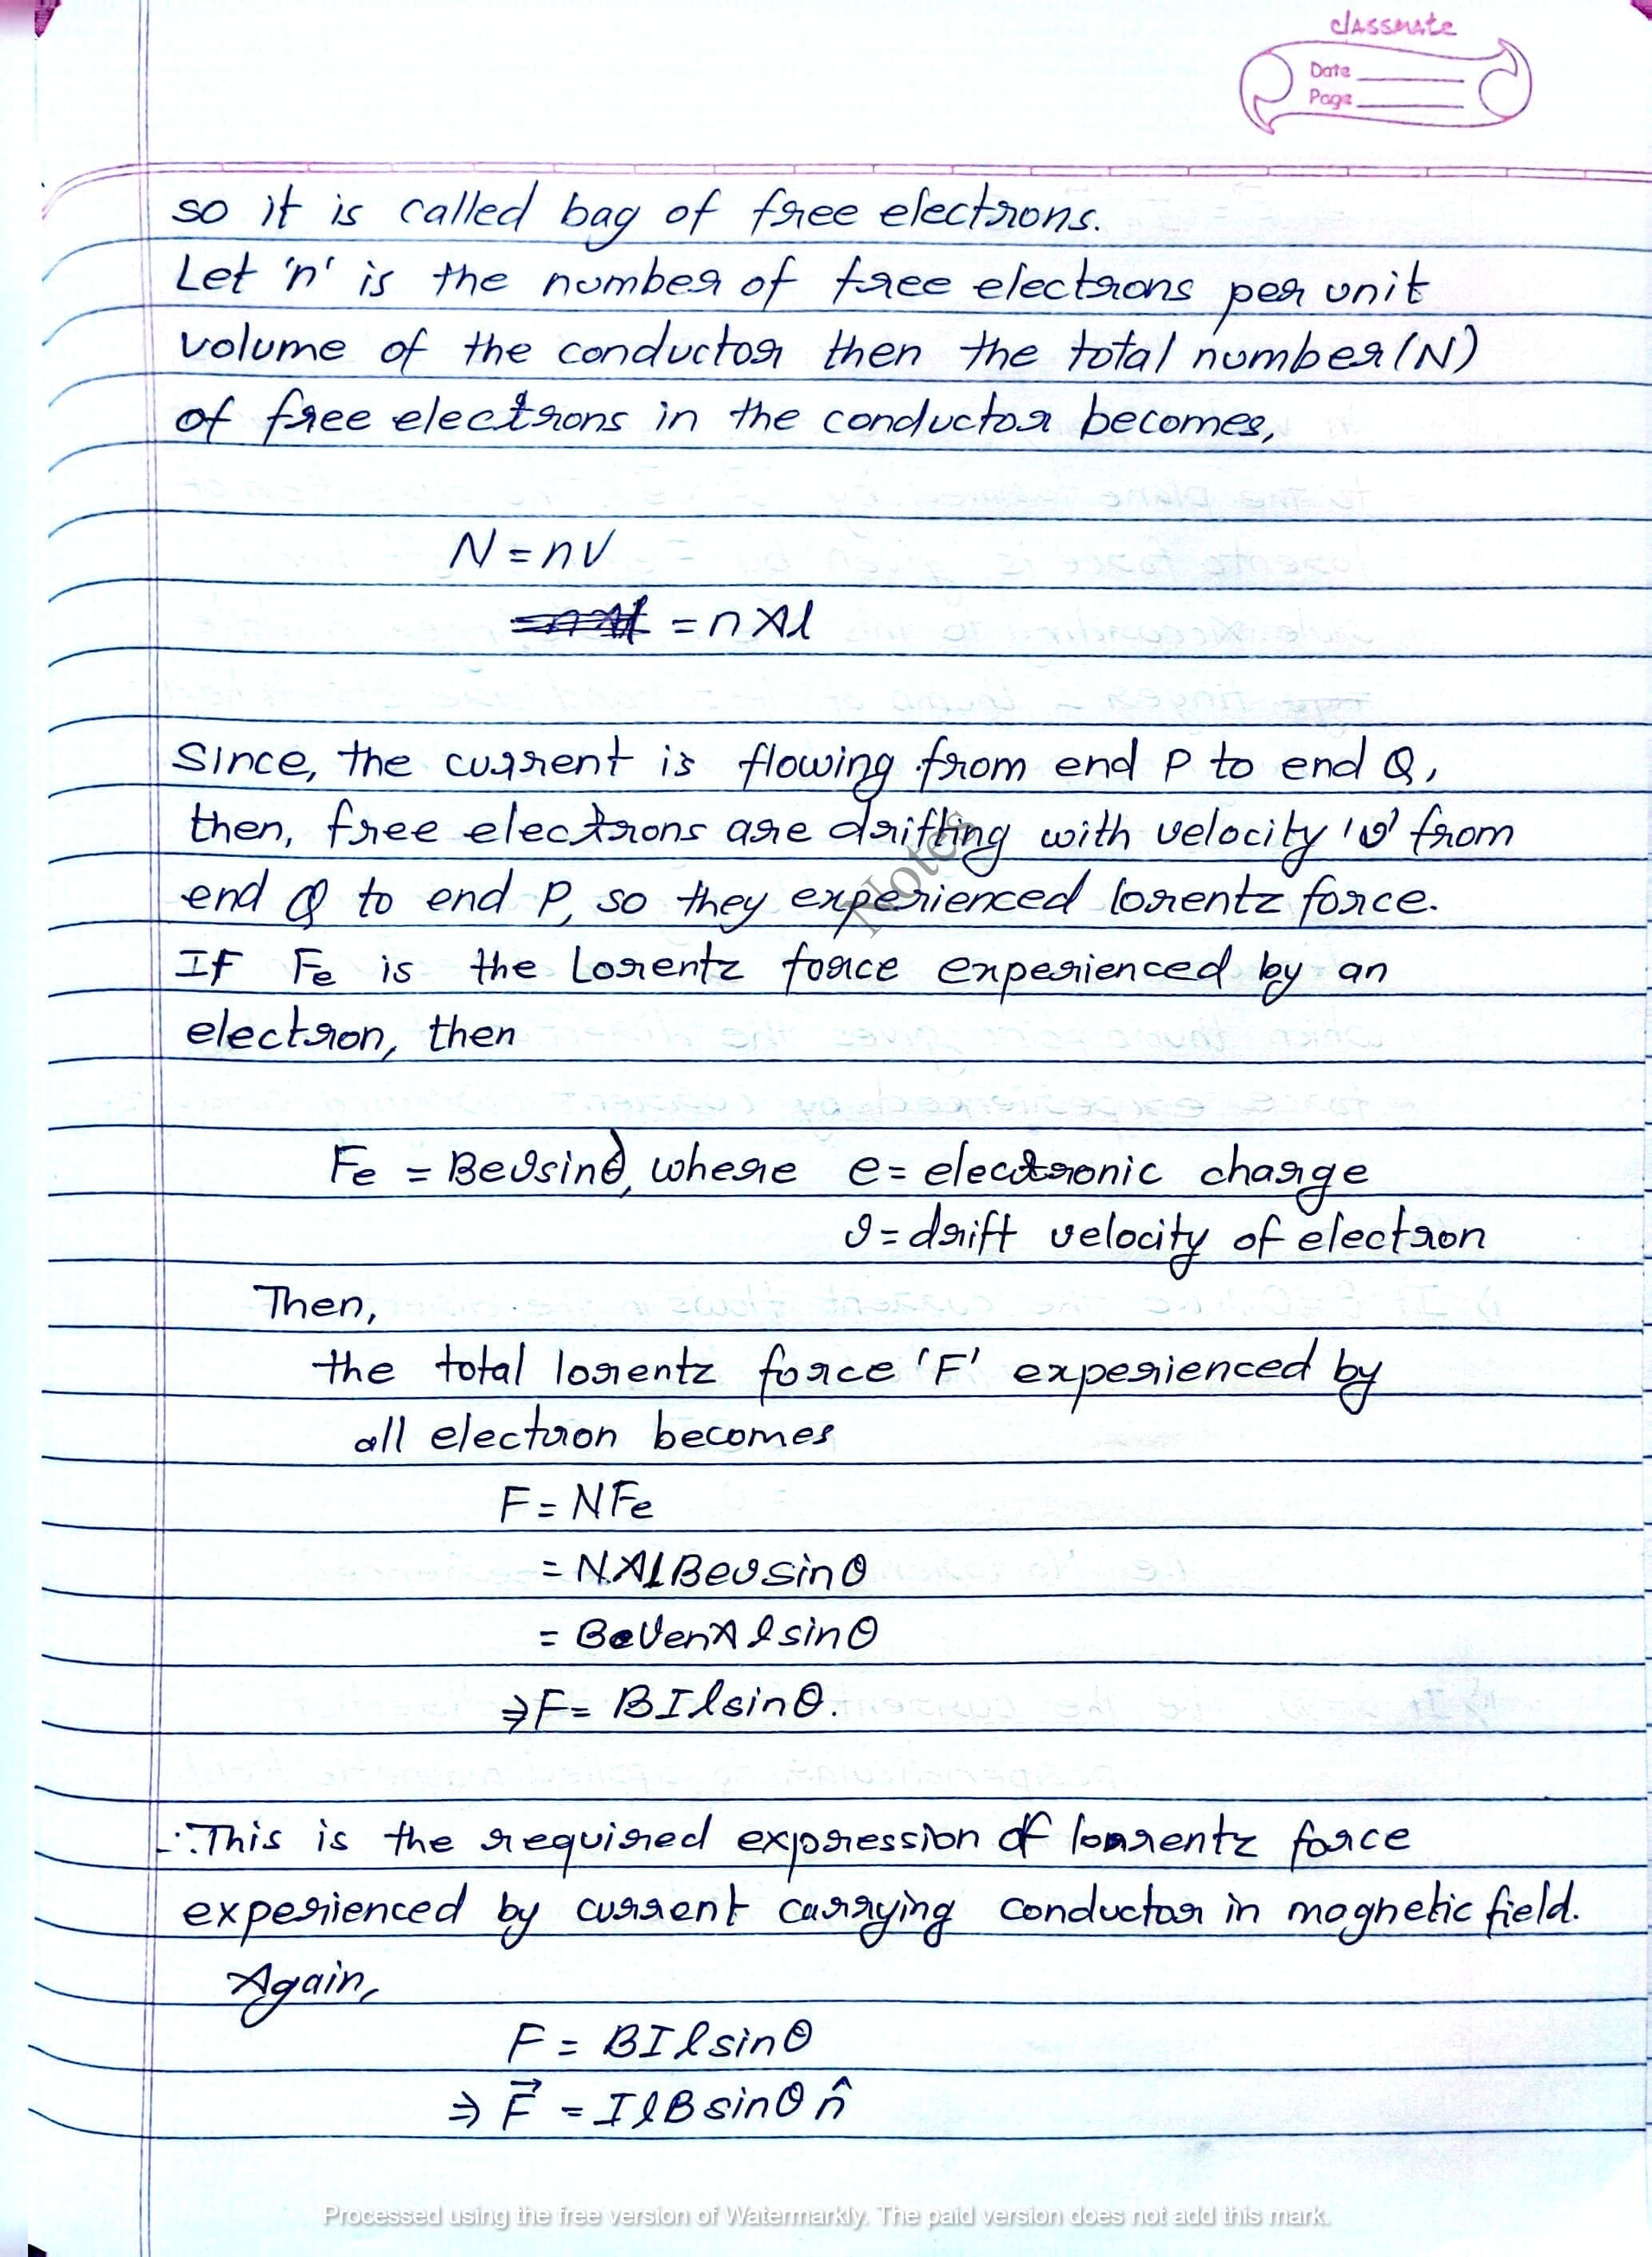 classmate
Date
Page
so it is called bag of free electrons.
Let 'n' is the number of free electrons per unit
volume of the conductor then the total number (N)
of free electrons in the conductor becomes,
N = nV
= nAl
Since, the current is flowing from end P to end Q,
then, free electrons are drifting with velocity 'v' from
end Q to end P, so they experienced lorentz force.
Notes
If Fe is the Lorentz force experienced by an
electron, then
Fe = Bevsinθ, where e = electronic charge
v = drift velocity of electron
Then,
the total lorentz force 'F' experienced by
all electron becomes
F = NFe
= NAlBevsinθ
= BvenAlsinθ
⇒ F = BIlsinθ.
∴ This is the required expression of lorentz force
experienced by current carrying conductor in magnetic field.
Again,
F = BIlsinθ
⇒ F⃗ = IlBsinθ n̂
Processed using the free version of Watermarkly. The paid version does not add this mark.